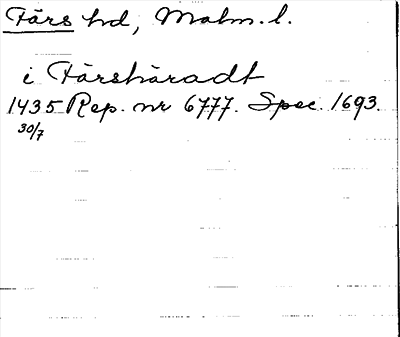 Färs hd, Malm. l.
i Färshäradt
1435 Rep. nr 6777. Spec. 1693.
30/7